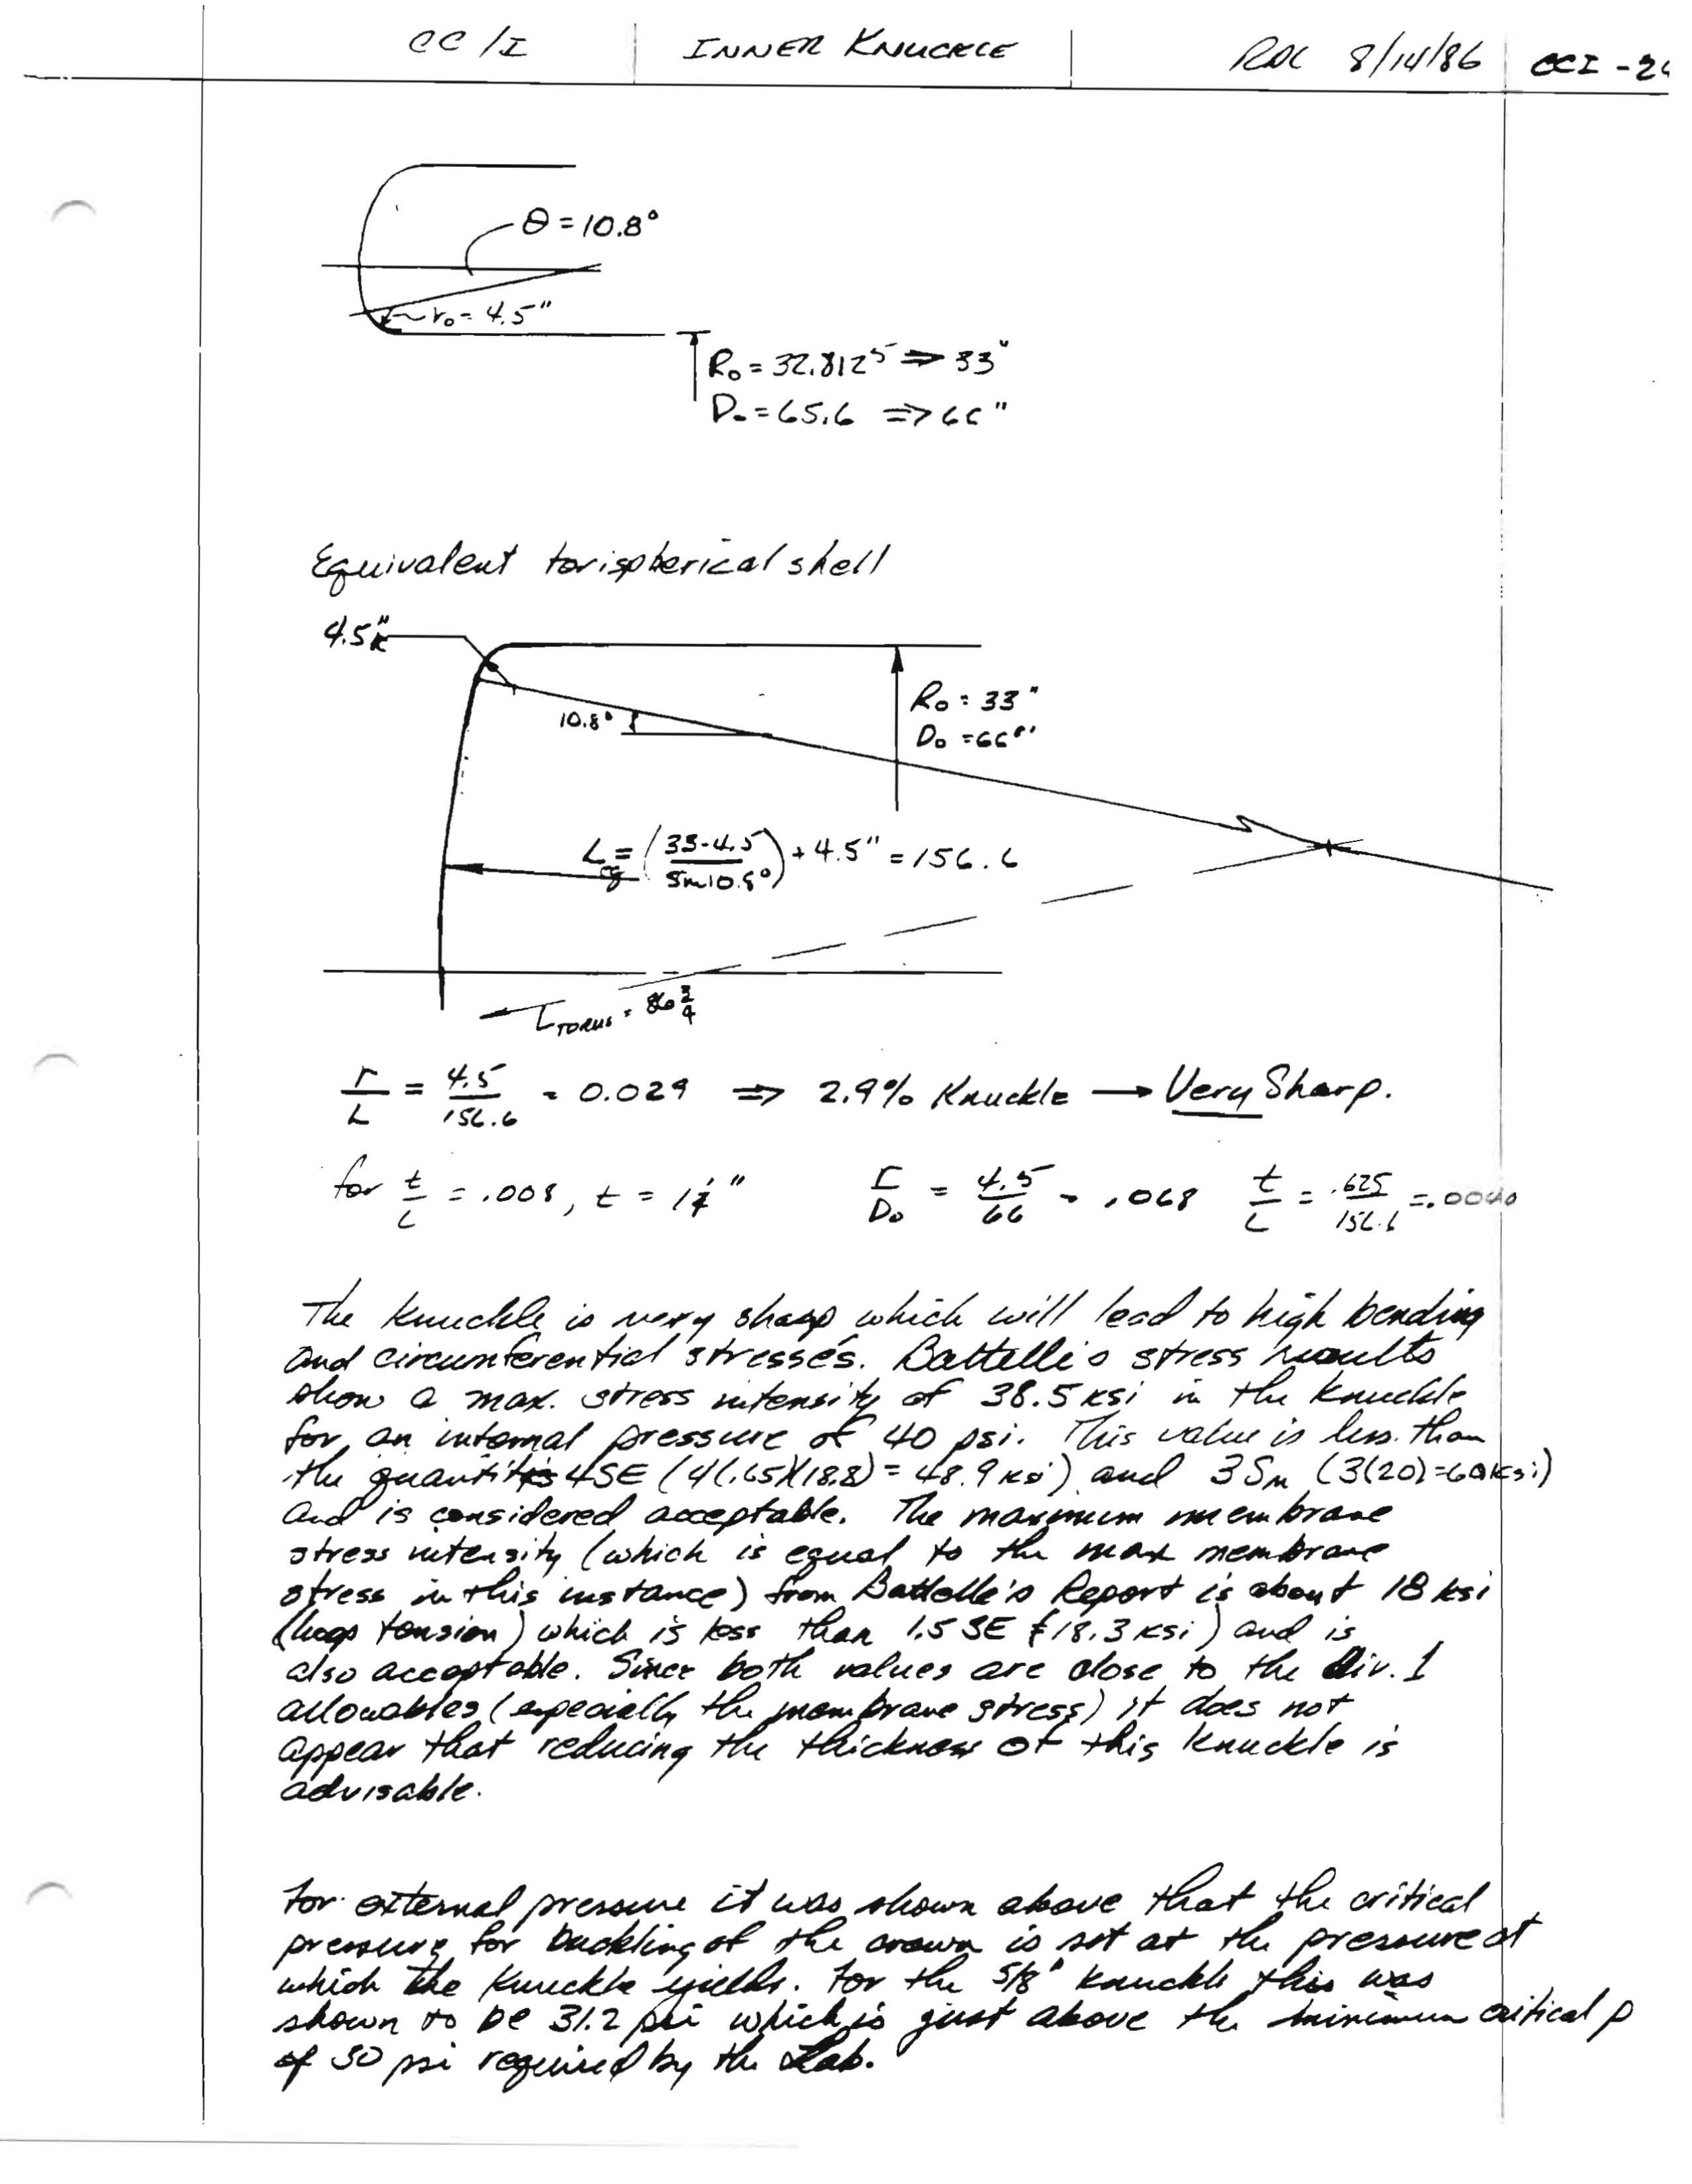 CC/I INNER KNUCKLE RDC 8/14/86 CCI-2
θ = 10.8°
r₀ = 4.5"
R₀ = 32.8125 ⇒ 33"
D₀ = 65.6 ⇒ 66"
Equivalent torispherical shell
4.5"R
10.8°
R₀ = 33"
D₀ = 66"
Leq = ((33-4.5)/sin10.8°) + 4.5" = 156.6
L TORUS = 86 3/4
r/L = 4.5/156.6 = 0.029 ⇒ 2.9% Knuckle → Very Sharp.
for t/L = .008, t = 1 1/4" r/D₀ = 4.5/66 = .068 t/L = .625/156.6 = .0040
The knuckle is very sharp which will lead to high bending
and circumferential stresses. Battelle's stress results
show a max. stress intensity of 38.5 ksi in the knuckle
for an internal pressure of 40 psi. This value is less than
the quantities 4SE (4(.65)(18.8) = 48.9 ksi) and 3Sm (3(20)=60ksi)
and is considered acceptable. The maximum membrane
stress intensity (which is equal to the max membrane
stress in this instance) from Battelle's Report is about 18 ksi
(hoop tension) which is less than 1.5 SE (18.3 ksi) and is
also acceptable. Since both values are close to the Div. 1
allowables (especially the membrane stress) it does not
appear that reducing the thickness of this knuckle is
advisable.
For external pressure it was shown above that the critical
pressure for buckling of the crown is set at the pressure at
which the knuckle yields. For the 5/8" knuckle this was
shown to be 31.2 psi which is just above the minimum critical p
of 30 psi required by the Lab.